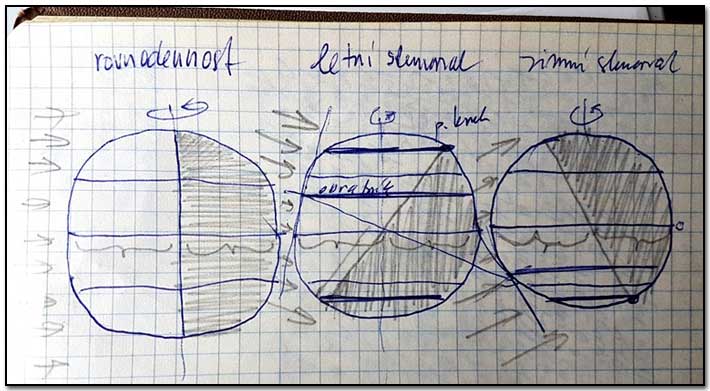 rovnodennost
letní slunovrat
zimní slunovrat
p. kruh
obratník